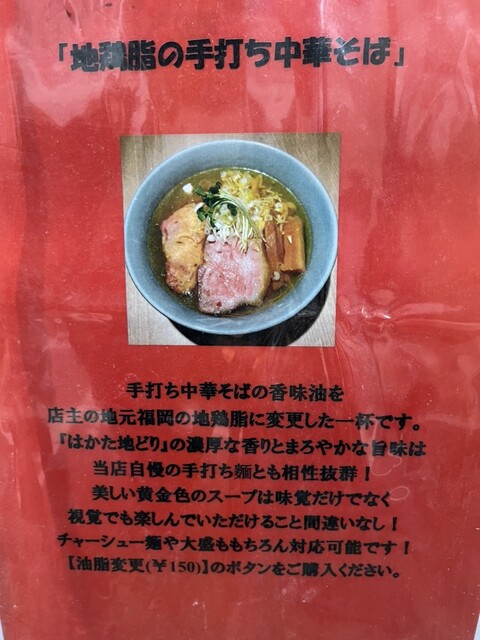 「地鶏脂の手打ち中華そば」
手打ち中華そばの香味油を
店主の地元福岡の地鶏脂に変更した一杯です。
『はかた地どり』の濃厚な香りとまろやかな旨味は
当店自慢の手打ち麺とも相性抜群！
美しい黄金色のスープは味覚だけでなく
視覚でも楽しんでいただけること間違いなし！
チャーシュー麺や大盛ももちろん対応可能です！
【油脂変更(￥150)】のボタンをご購入ください。